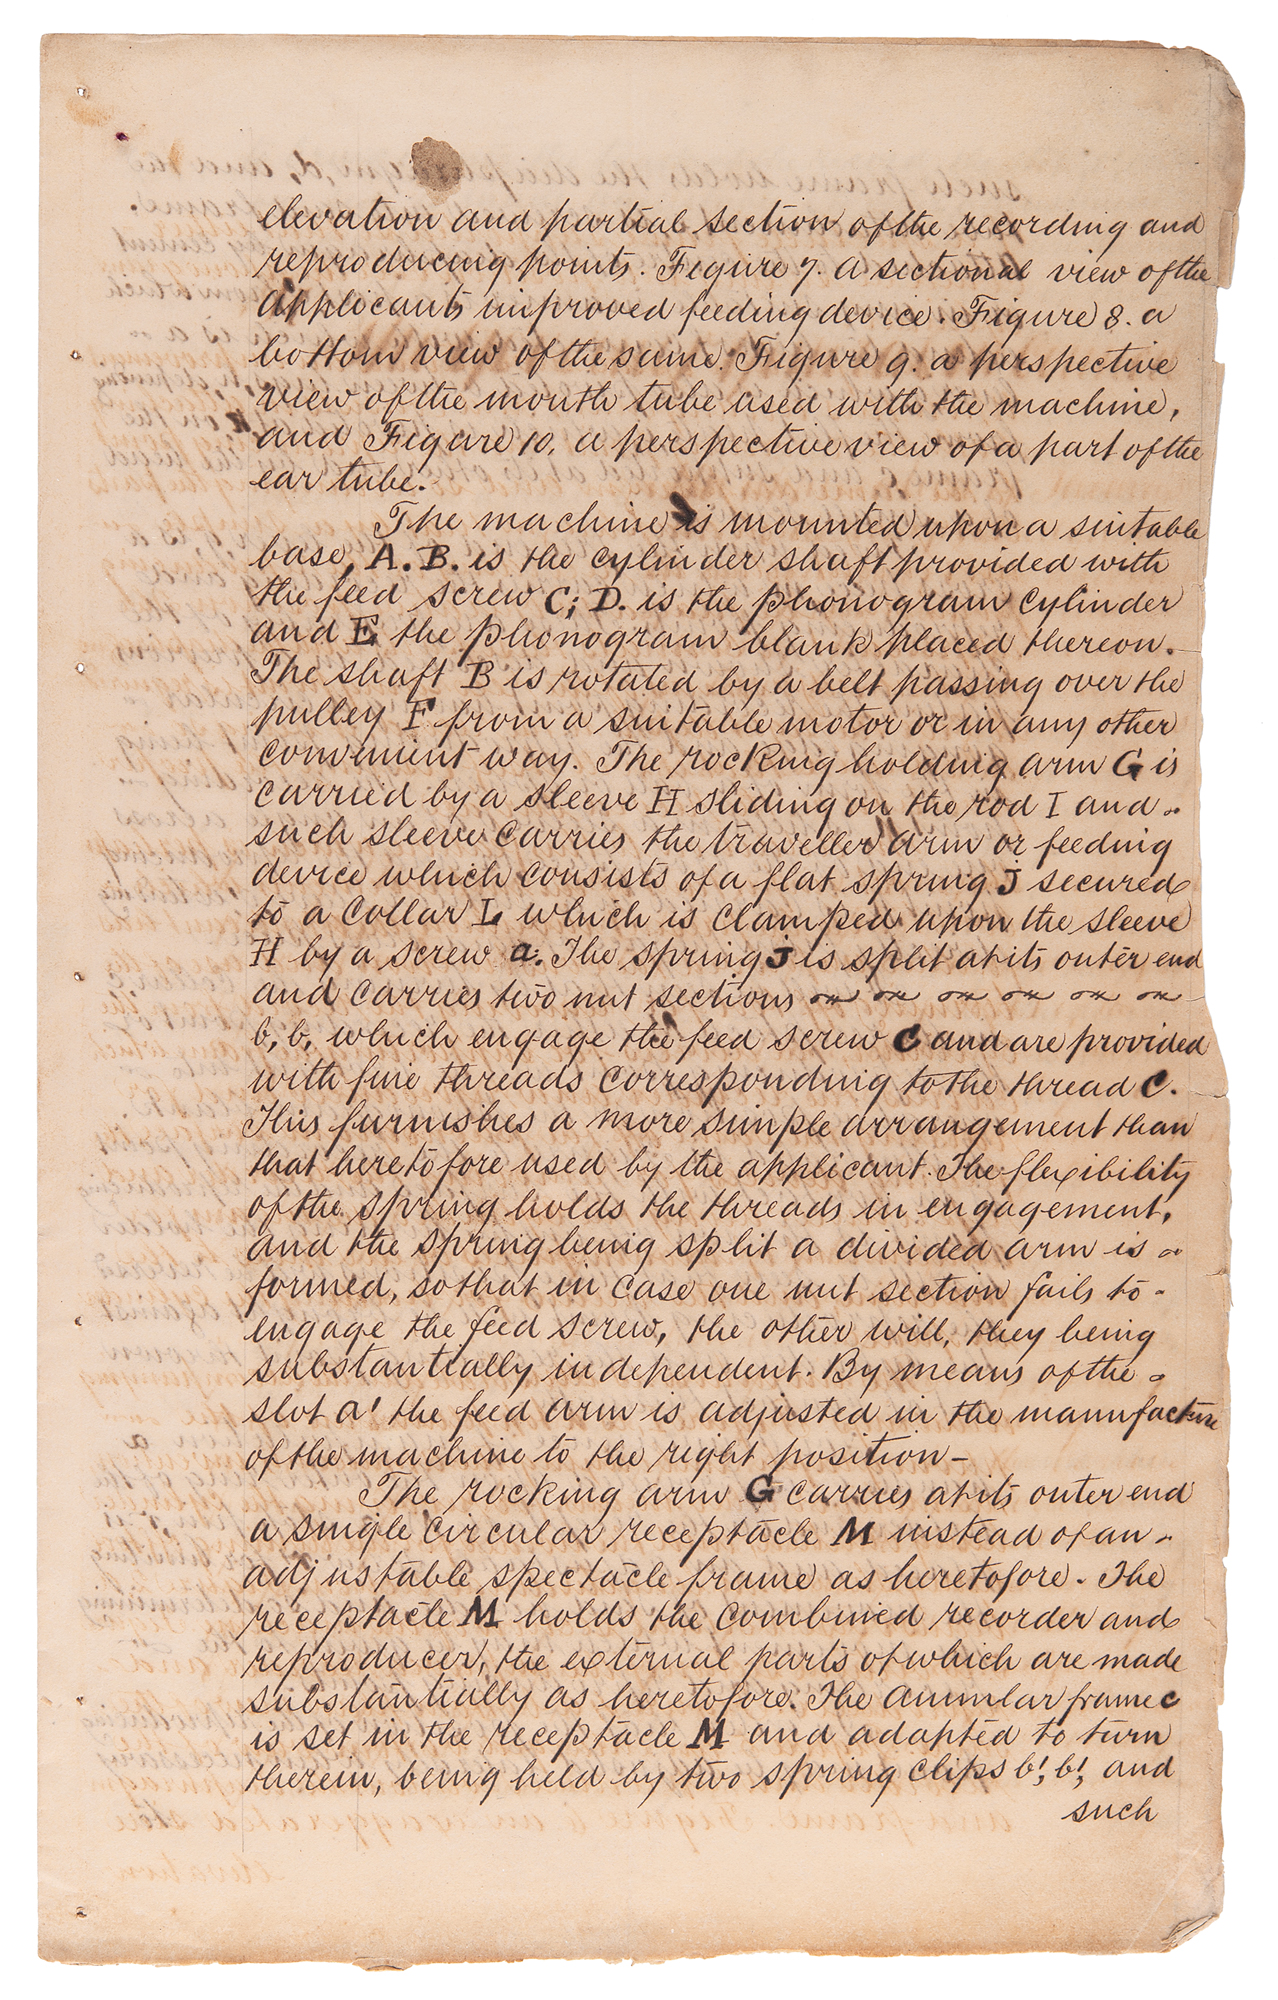 elevation and partial section of the recording and
reproducing points. Figure 7. a sectional view of the
applicants improved feeding device. Figure 8. a
bottom view of the same. Figure 9. a perspective
view of the mouth tube used with the machine,
and Figure 10, a perspective view of a part of the
ear tube.
The machine is mounted upon a suitable
base, A. B. is the cylinder shaft provided with
the feed screw C; D. is the phonogram cylinder
and E the phonogram blank placed thereon.
The shaft B is rotated by a belt passing over the
pulley F from a suitable motor or in any other
convenient way. The rocking holding arm G is
carried by a sleeve H sliding on the rod I and
such sleeve carries the traveller arm or feeding
device which consists of a flat spring J secured
to a collar L which is clamped upon the sleeve
H by a screw a. The spring J is split at its outer end
and carries two nut sections
b, b, which engage the feed screw C and are provided
with fine threads corresponding to the thread C.
This furnishes a more simple arrangement than
that heretofore used by the applicant. The flexibility
of the spring holds the threads in engagement,
and the spring being split a divided arm is
formed, so that in case one nut section fails to -
engage the feed screw, the other will, they being
substantially independent. By means of the -
slot a' the feed arm is adjusted in the manufacture
of the machine to the right position -
The rocking arm G carries at its outer end
a single circular receptacle M instead of an -
adjustable spectacle frame as heretofore. The
receptacle M holds the combined recorder and
reproducer, the external parts of which are made
substantially as heretofore. The annular frame c
is set in the receptacle M and adapted to turn
therein, being held by two spring clips b', b', and
such